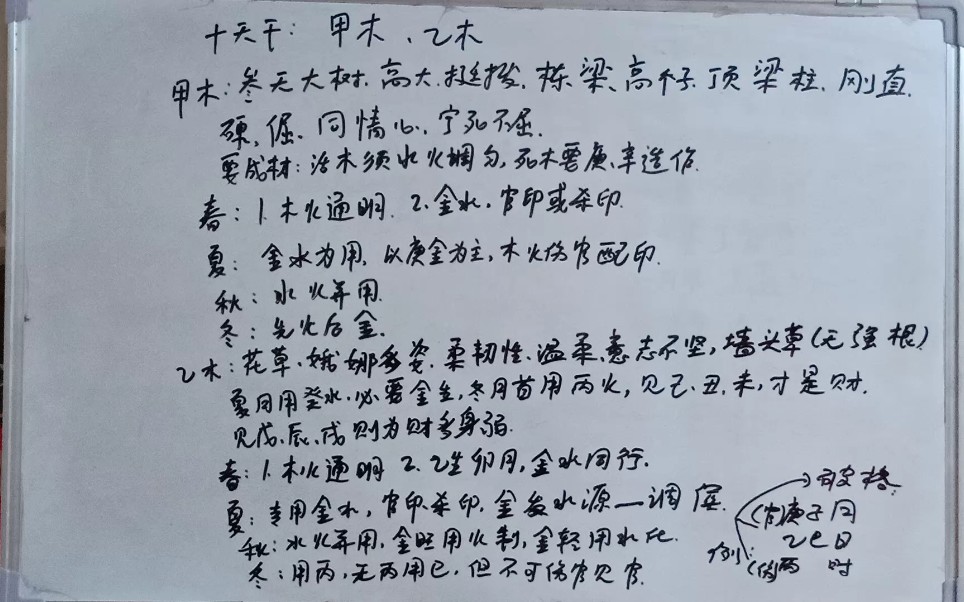 十天干：甲木、乙木
甲木：参天大树、高大、挺拔、栋梁、高个子、顶梁柱、刚直、
硬、倔、同情心、宁死不屈.
要成材：活木须水火调匀，死木要庚、辛造作.
春：1.木火通明. 2.金水，官印或杀印.
夏：金水为用，以庚金为主，木火伤官配印.
秋：水火并用.
冬：先火后金.
乙木：花草、婀娜多姿、柔韧性、温柔、意志不坚，墙头草(无强根)
夏月用癸水，必要金生，冬月首用丙火，见己、丑、未，才是财.
见戊、辰、戌则为财多身弱.
春：1.木火通明 2.乙生卯月，金水同行.
夏：专用金水，官印、杀印，金发水源—调候
秋：水火并用，金旺用火制，金轻用水化.
冬：用丙，无丙用巳，但不可伤官见官.
例：
破格
(官)庚子月
乙巳日
(伤)丙 时